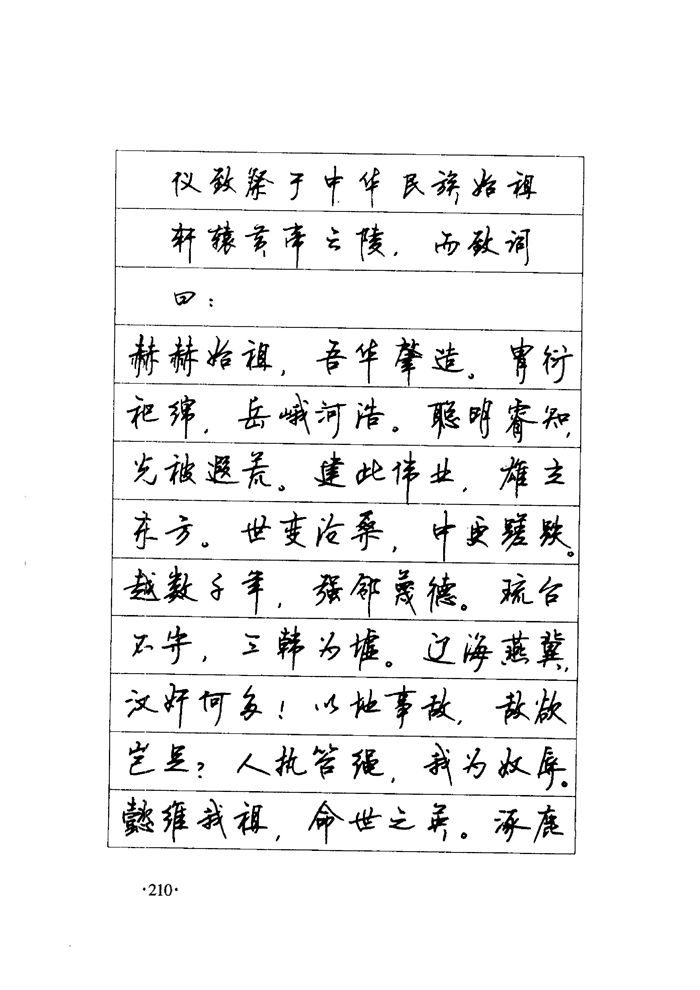 仪致祭于中华民族始祖
轩辕黄帝之陵，而致词
曰：
赫赫始祖，吾华肇造。胄衍
祀绵，岳峨河浩。聪明睿知，
光被遐荒。建此伟业，雄立
东方。世变沧桑，中更蹉跌。
越数千年，强邻蔑德。琉台
不守，三韩为墟。辽海燕冀，
汉奸何多！以地事敌，敌欲
岂足？人执笞绳，我为奴辱。
懿维我祖，命世之英。涿鹿
·210·